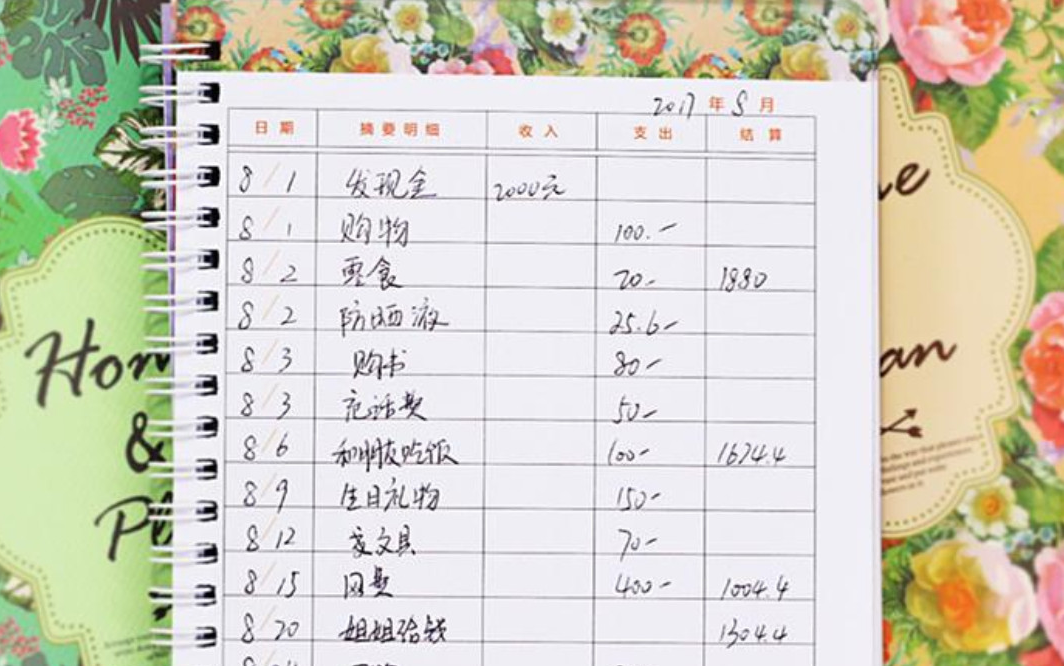 2017 年 8 月
日期 摘要明细 收入 支出 结算
8/1 发现金 2000元
8/1 购物 100.-
8/2 零食 20- 1880
8/2 防晒液 25.6-
8/3 购书 80-
8/3 电话费 50-
8/6 和朋友吃饭 100- 1624.4
8/9 生日礼物 150-
8/12 文具 70-
8/15 网费 400- 1004.4
8/20 姐姐给钱 1304.4
Hom
&
Pl
e
an